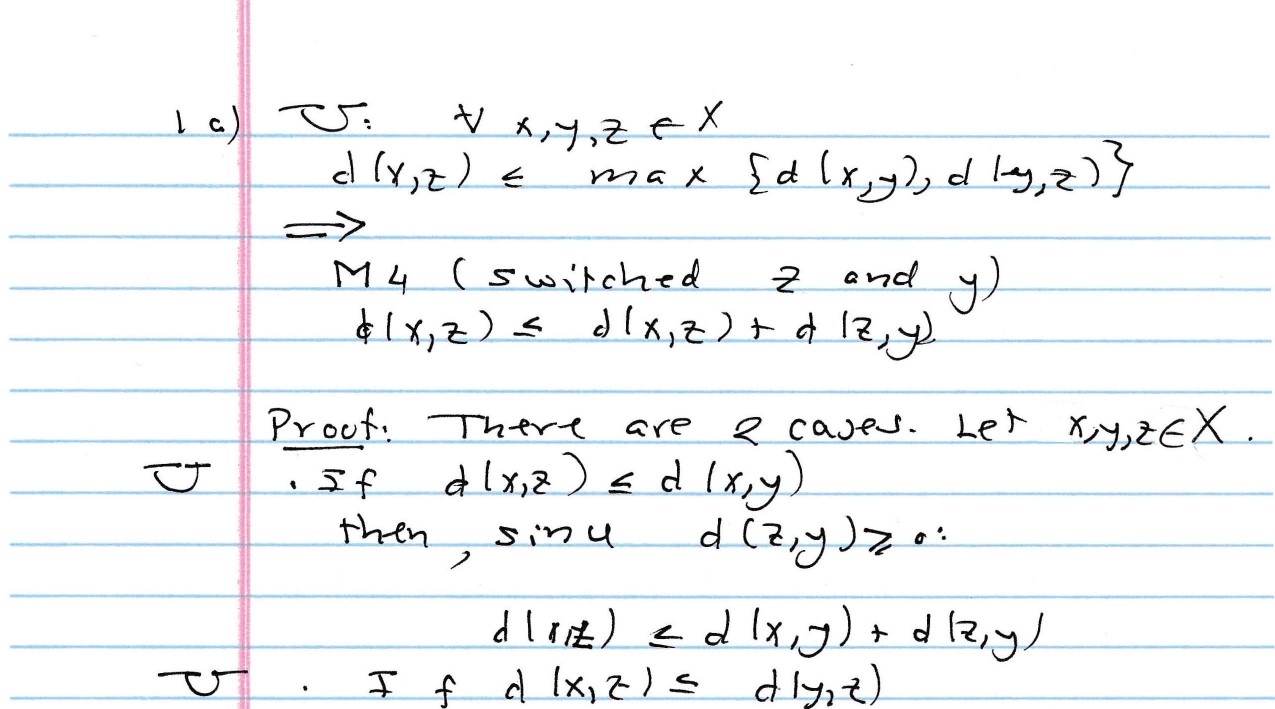 1 a) U: ∀ x,y,z ∈ X
d(x,z) ≤ max {d(x,y), d(y,z)}
⟹
M4 (switched z and y)
d(x,z) ≤ d(x,z) + d(z,y)
Proof: There are 2 cases. Let x,y,z∈X.
U . If d(x,z) ≤ d(x,y)
then, since d(z,y) ≥ 0:
d(x,z) ≤ d(x,y) + d(z,y)
U . If d(x,z) ≤ d(y,z)